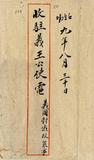 九年八月三十日
收駐義王公使電
義國對俄政策事